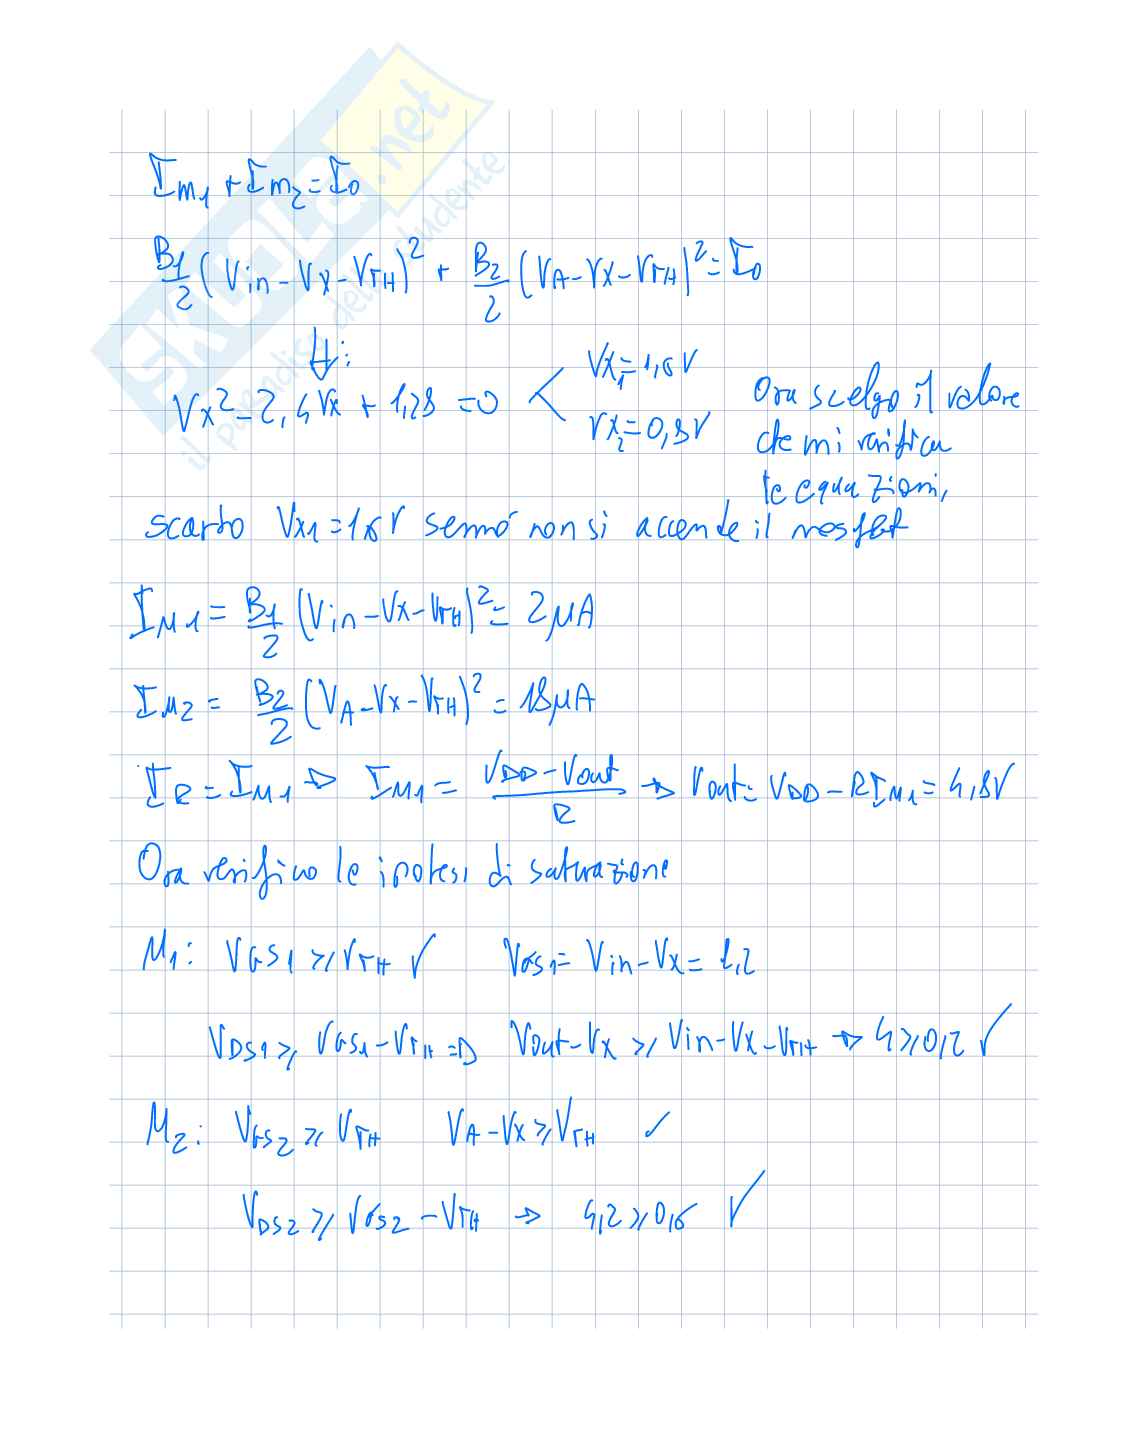 SKUOLA.net
il paradiso dello studente
IM1 + IM2 = I0
B1/2 (Vin - Vx - VTH)² + B2/2 (VA - Vx - VTH)² = I0
⇓:
Vx² - 2,4Vx + 1,28 = 0 < Vx1 = 1,6V
Vx2 = 0,8V
Ora scelgo il valore
che mi verifica
le equazioni,
scarto Vx1 = 1,6V sennó non si accende il mosfet
IM1 = B1/2 (Vin - Vx - VTH)² = 2μA
IM2 = B2/2 (VA - Vx - VTH)² = 18μA
IR = IM1 → IM1 = (VDD - Vout)/R → Vout = VDD - R IM1 = 4,8V
Ora verifico le ipotesi di saturazione
M1: VGS1 ≥ VTH ✓ VGS1 = Vin - Vx = 1,2
VDS1 ≥ VGS1 - VTH ⇒ Vout - Vx ≥ Vin - Vx - VTH → 4 ≥ 0,2 ✓
M2: VGS2 ≥ VTH VA - Vx ≥ VTH ✓
VDS2 ≥ VGS2 - VTH → 4,2 ≥ 0,6 ✓